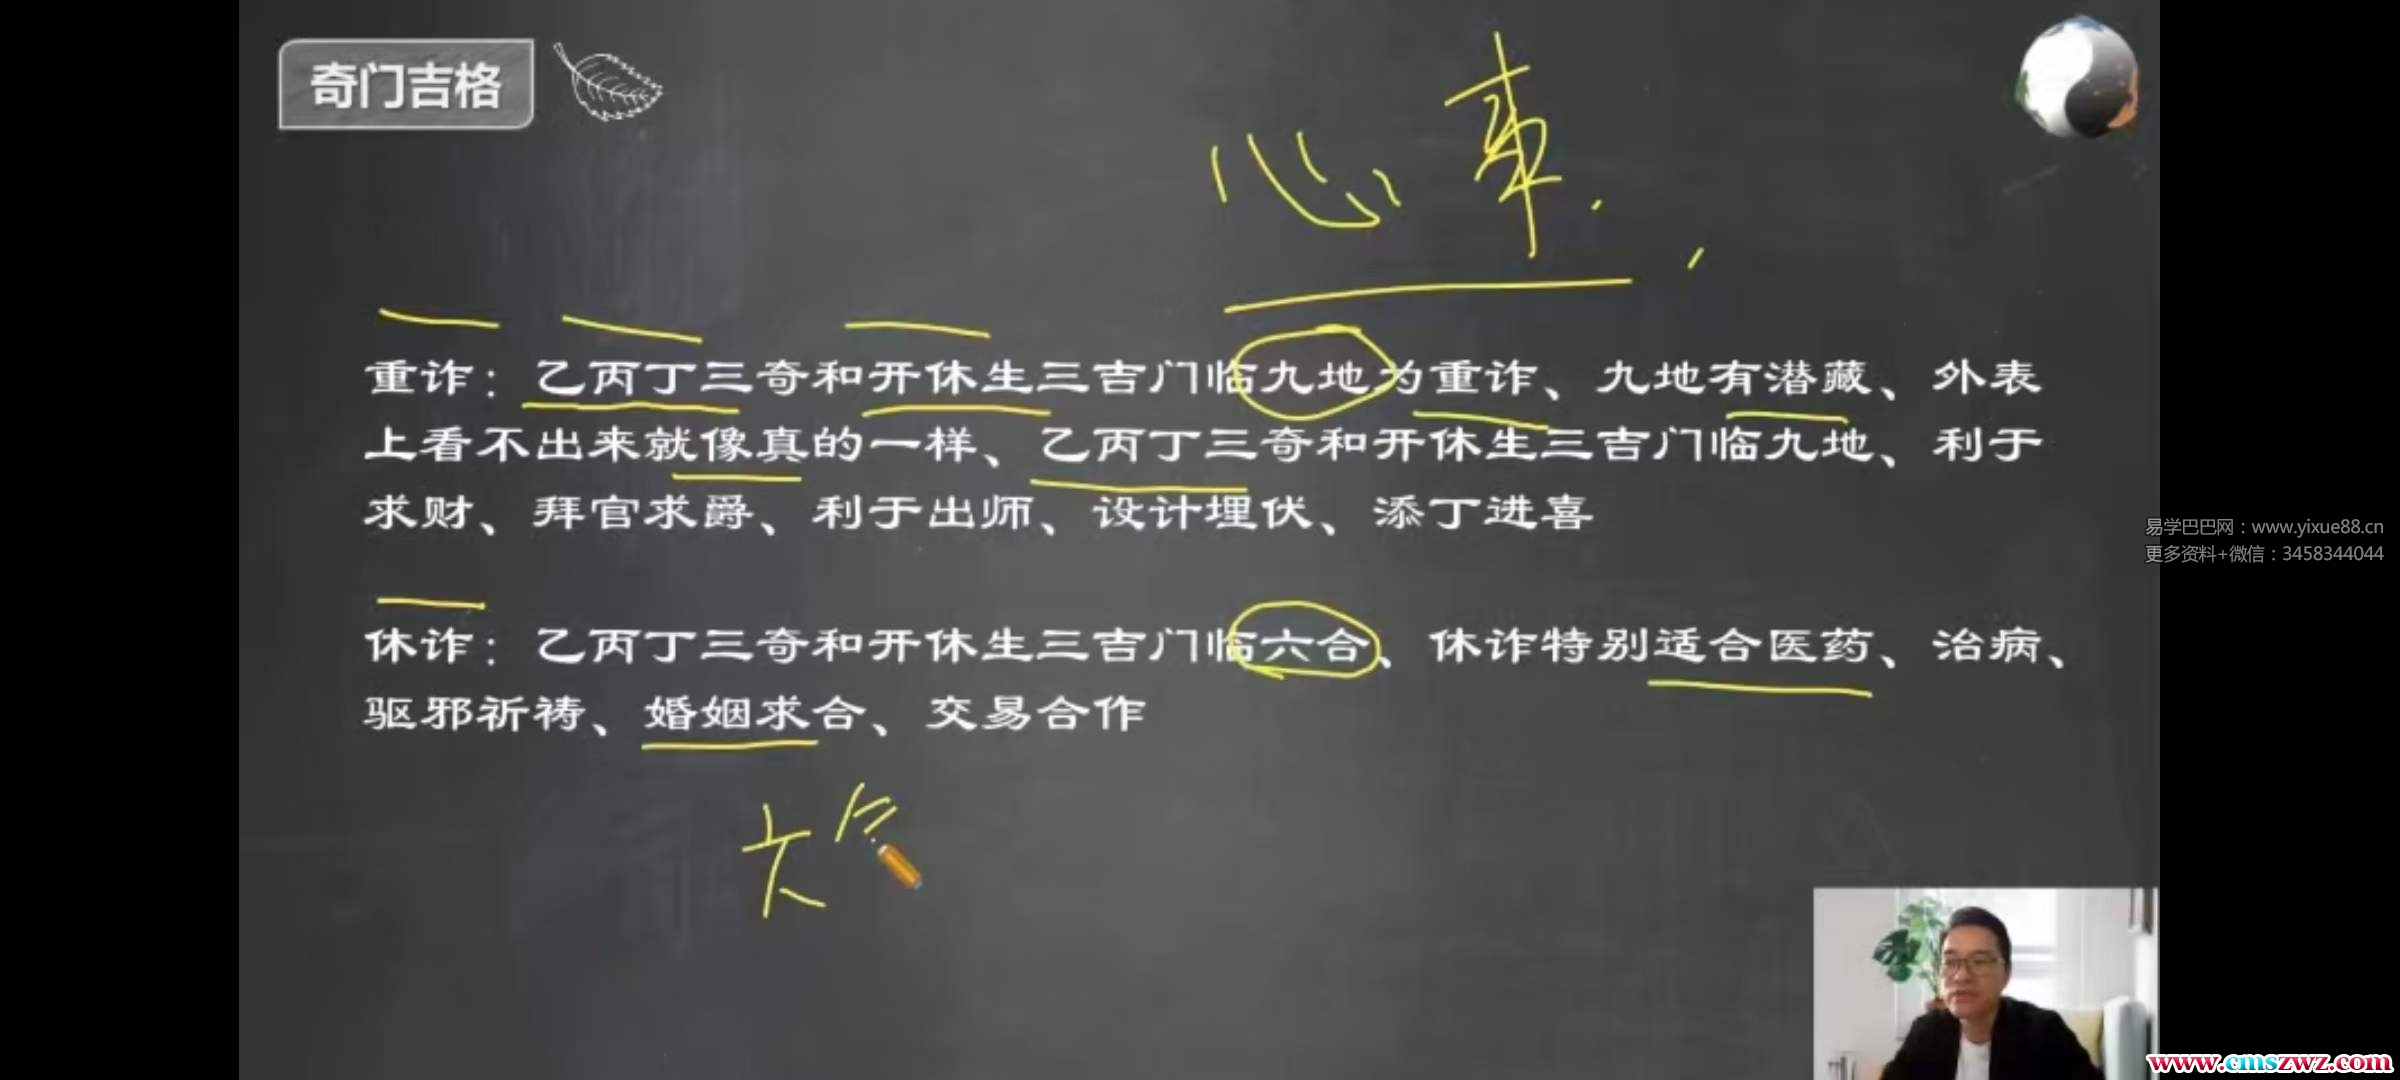 奇门吉格
心事
重诈：乙丙丁三奇和开休生三吉门临九地为重诈、九地有潜藏、外表
上看不出来就像真的一样、乙丙丁三奇和开休生三吉门临九地、利于
求财、拜官求爵、利于出师、设计埋伏、添丁进喜
易学巴巴网：www.yixue88.cn
更多资料+微信：3458344044
休诈：乙丙丁三奇和开休生三吉门临六合、休诈特别适合医药、治病、
驱邪祈祷、婚姻求合、交易合作
六
www.cmszwz.com